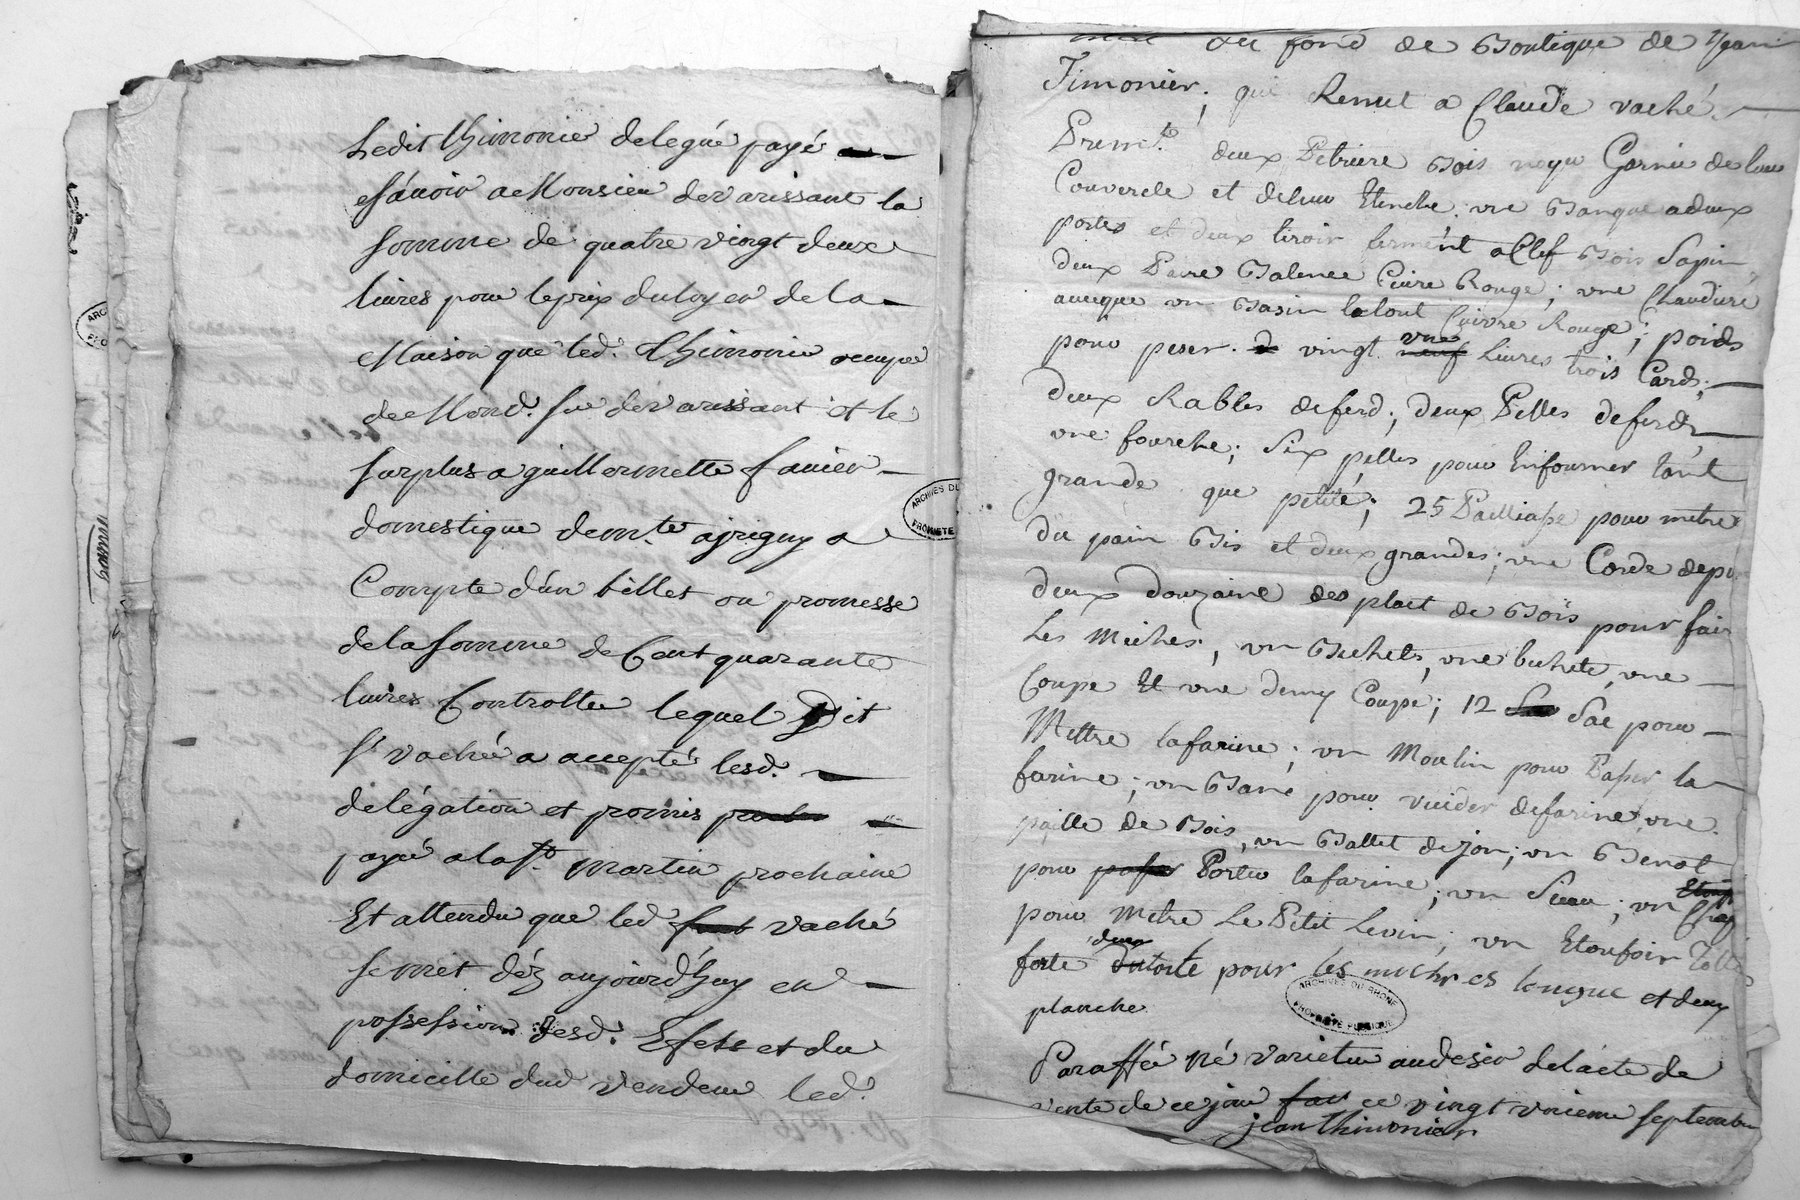 Ledit thimonie delegué payé
sçauoir a Monsieu devarissant la
somme de quatre vingt deux
liures pour le prix du loyer de la
Maison que led. thimonie occupe
de Mond. sr devarissant et le
surplus a guillermette fauier
domestique de mr. te ajriguy a
Compte d'un billet ou promesse
de la somme de Cent quarante
liures Controlle lequel dit
sr vaché a accepté lesd.
délégation et promis
payé a la st. martin prochaine
Et attendu que led vaché
se met déz aujourd'huy en
possession desd. Efets et du
domicille dud vendeur led.
ou fond de Boutique de Jean
Timonier; qui Remet a Claude vaché.
Premt. deux Petriere Bois noyu Garnie de leur
Couvercle et deleur Etenche; vne Banque a deux
portes et deux tiroir ferment a Clef Bois Sapin
deux Paire Balence Cuivre Rouge; vne Chaudiere
aueque vn Basin letout Cuivre Rouge; poids
pour peser. vingt vne Liures trois Cards;
deux Rables deferd; deux Pelles deferd;
vne fourche; Six pelles pour Enfourner tant
grande que petite; 25 Pailliasse pour metre
du pain Bis et deux grandes; vne Corde depu
deux douzaine des plait de Bois pour fair
Les miches; vn Bichet, vne bichete, vne
Coupe Et vne demy Coupe; 12 Sac pour
Mettre lafarine; vn Moulin pour Passer la
farine; vn Bané pour vuider defarine, vne
paille de Bois, vn Ballet dejon; vn Benot
pour Porter lafarine; vn Sieau; vn
pour Metre Le Petit Levin; vn Etoufoir Tolle
forte deux torte pour les miches longue et deux
planche
Paraffée Né varietur au desir de lacte de
vente de ce jour ce vingt vnieme septembre
jean thimonier
ARCHIVES DU RHONE
PROPRIETE PUBLIQUE